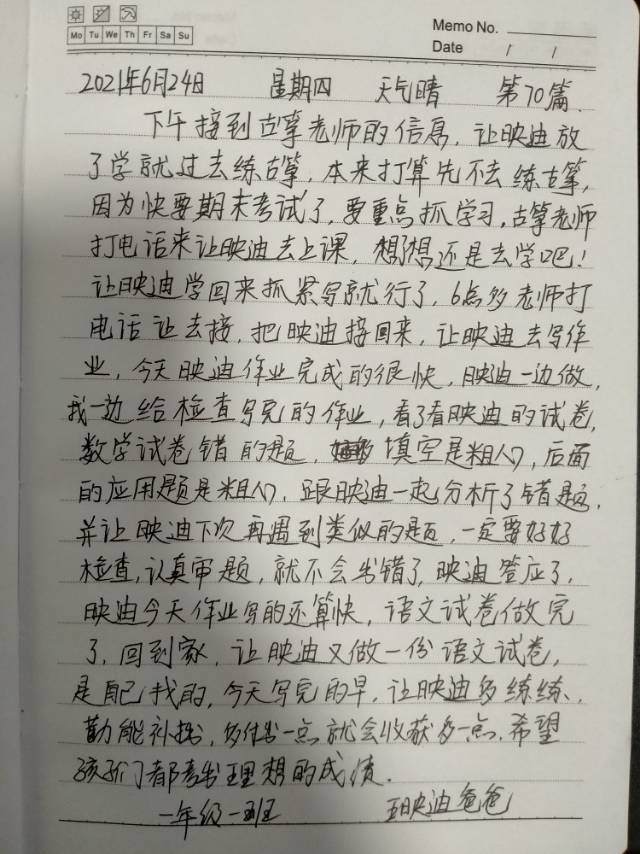 Memo No.
Mo Tu We Th Fr Sa Su
Date / /
2021年6月24日 星期四 天气晴 第70篇.
下午接到古筝老师的信息，让映迪放
了学就过去练古筝，本来打算先不去练古筝，
因为快要期末考试了，要重点抓学习，古筝老师
打电话来让映迪去上课，想想还是去学吧！
让映迪学回来抓紧写就行了，6点多老师打
电话让去接，把映迪接回来，让映迪去写作
业，今天映迪作业完成的很快，映迪一边做，
我一边给检查写完的作业，看了看映迪的试卷，
数学试卷错的题，填空是粗心，后面
的应用题是粗心，跟映迪一起分析了错题，
并让映迪下次再遇到类似的题，一定要好好
检查，认真审题，就不会出错了，映迪答应了，
映迪今天作业写的还算快，语文试卷做完
了，回到家，让映迪又做一份语文试卷，
是自己找的，今天写完的早，让映迪多练练，
勤能补拙，多付出一点就会收获多一点，希望
孩子们都考出理想的成绩.
一年级一班 映迪爸爸